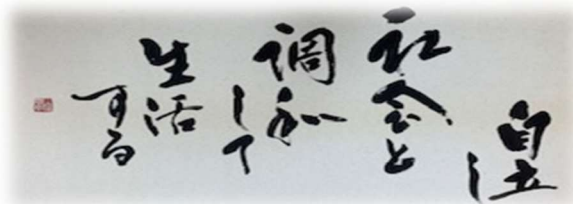 自立し
社会と
調和して
生活
する